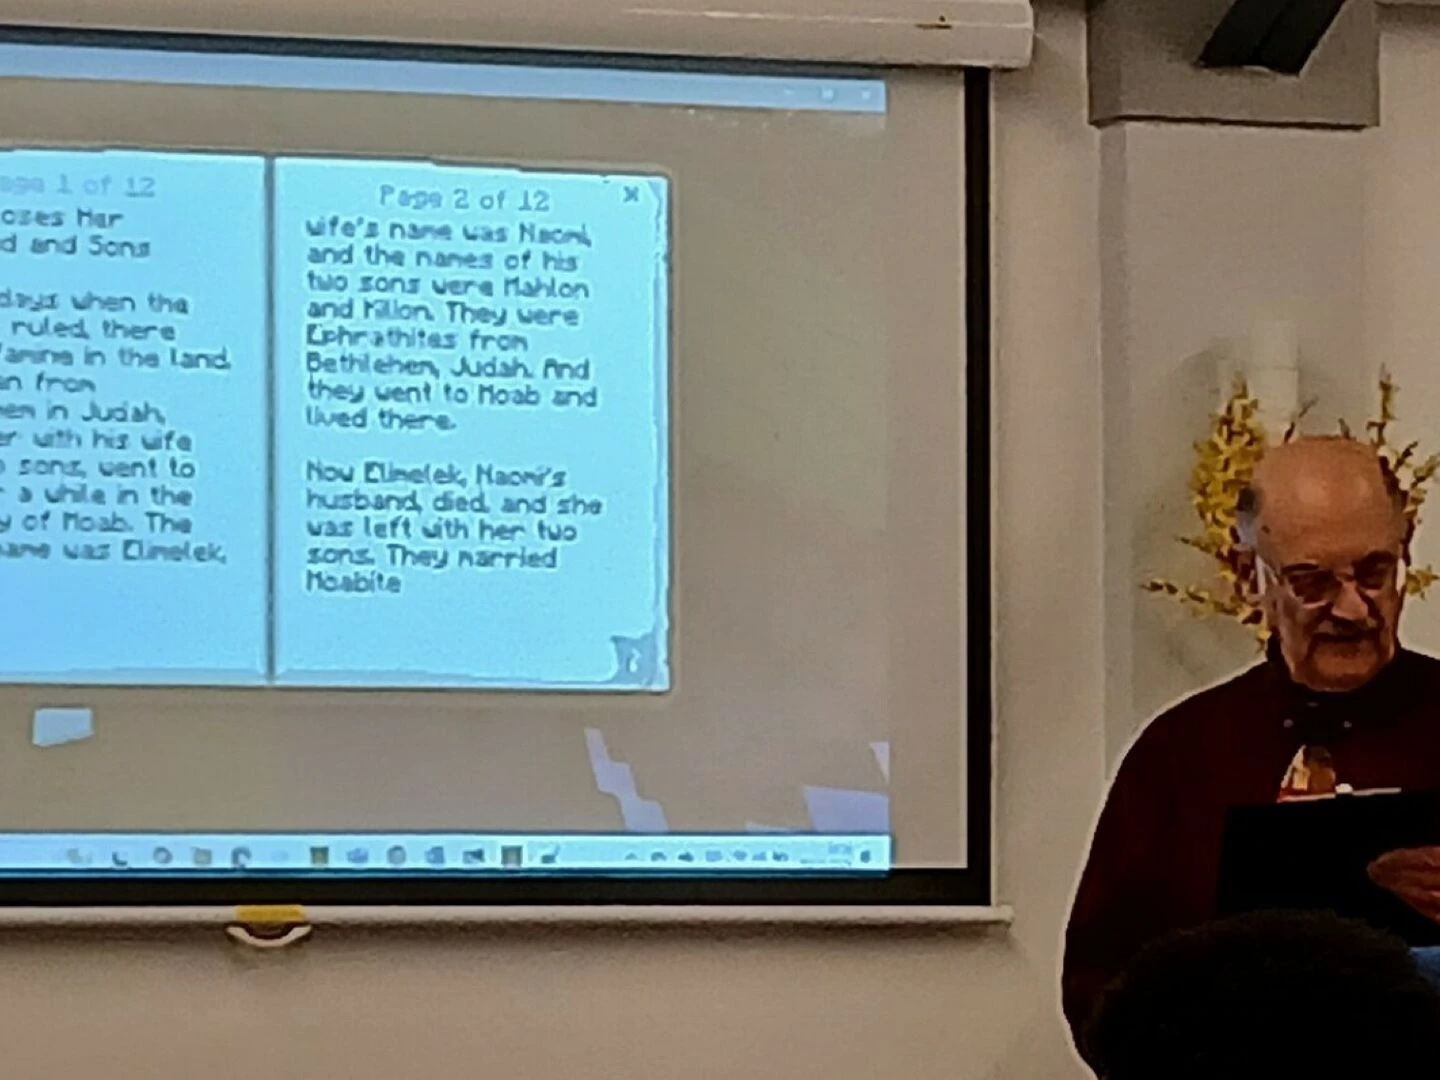 Page 1 of 12
oses Her
d and Sons
days when the
ruled, there
famine in the land.
an from
hem in Judah,
er with his wife
o sons, went to
r a while in the
y of Moab. The
name was Elimelek,
Page 2 of 12
wife's name was Naomi,
and the names of his
two sons were Mahlon
and Kilion. They were
Ephrathites from
Bethlehem, Judah. And
they went to Moab and
lived there.
Now Elimelek, Naomi's
husband, died, and she
was left with her two
sons. They married
Moabite